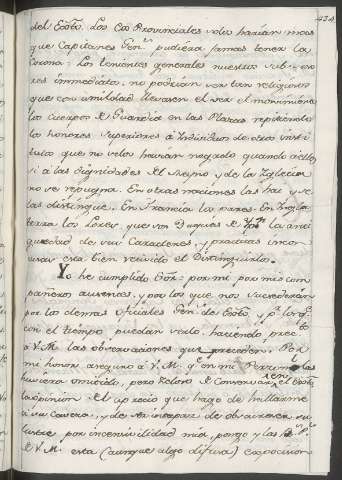 434
del Exto. Los Cos Provinciales solo harian mas
que Capitanes Gen.s pudiera jamas tener la
Corona: Los tenientes generales nuestros
inmediatos no podrian ver tan religiosos
que con umildad llevasen el ver el movimiento
los cuerpos de Guardia en las Plazas repitiendo
los honores Superiores a Individuos de otro insti
tuto que no selos havian negado quando
si a las dignidades del Reyno y de la Iglesia
no se repugna. En otras naciones las hay y se
las distingue. En Francia los pares. En Ingla
terra los Lores, que son Duques la anti
guedad de sus Caracteres, y practicas
esta bien recivido el Distinguirlo.
Yo he cumplido Señor por mi por mis com
pañeros ausentes, y por los que nos sucederan
por los demas oficiales Gen.s de Exto, y p.r los q.e
con el tiempo puedan serlo, haciendo pres.te
a V.M. las observaciones que preceden. Por
mi honor aseguro a V.M. q.e en mi Persona las
huviera omitido, pero zeloso de conservar en el Exto
la opinion de el aprecio que hago de hallarme
a su Cavera, y de ser incapaz de obscurecer su
lustre por incivilidad mia, pongo a los R.s P.s
de V.M. esta (aunque algo difusa) exposicion